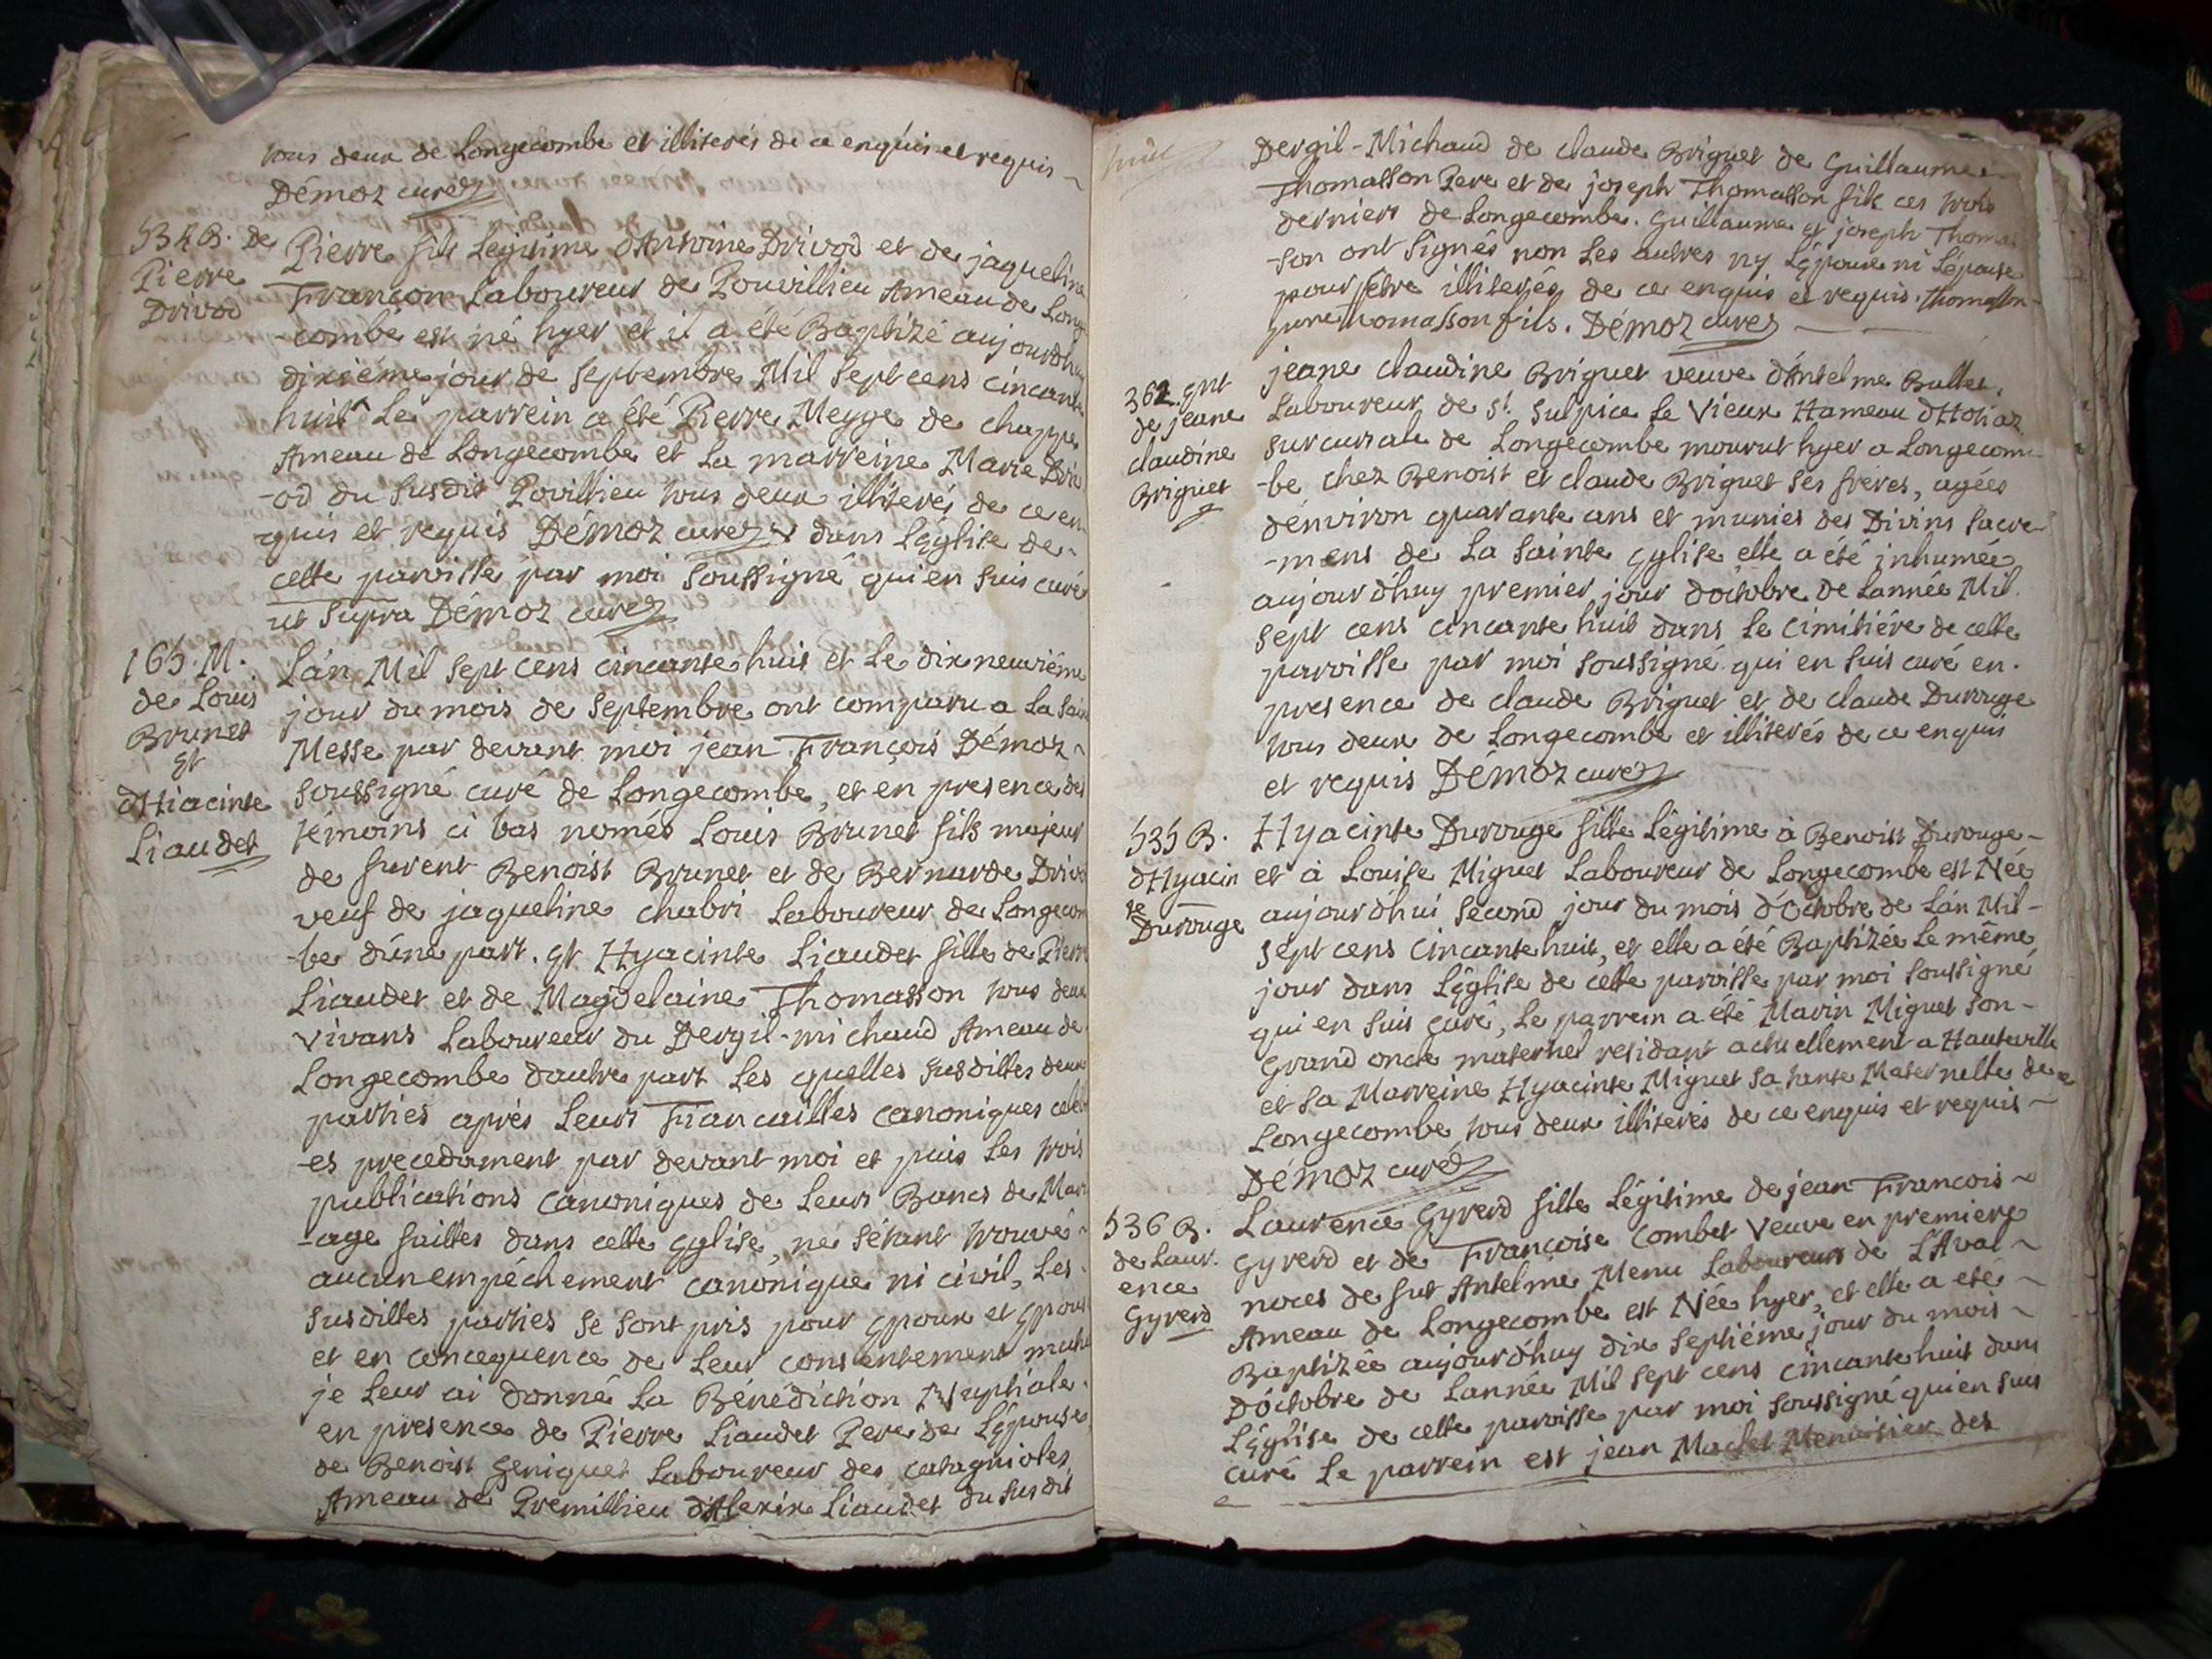 tous deux de Longecombe et illiterés de ce enquis et requis
Démoz curé
534 B. De
Pierre
Drivod
Pierre fils Legitime d'Antoine Drivod et de jaqueline
Francon Laboureur de Pouvillieu Ameau de Long
-combe est né hyer et il a été Baptizé aujourdhuy
dixiéme jour de Septembre Mil Sept cens cincante
huit Le parrein a été Pierre Megge de
Ameau de Longecombe et La marreine Marie Driv
-od du Susdit Povillieu tous deux illiterés de ce en
quis et requis Démoz curé dans L'église de
cette paroisse par moi Soussigné qui en Suis curé
ut Supra Démoz curé
165. M.
de Louis
Brunet
et
d'Hiacinte
Liaudet
Lán Mil Sept cens cincante huit et Le dix neuviéme
jour du mois de Septembre ont comparu a La Sain
Messe par devant moi jean François Démoz
Soussigné curé de Longecombe, et en presence des
témoins ci bas només Louis Brunet fils majeur
de furent Benoist Brunet et de Bernarde Drivo
veuf de jaqueline Chabri Laboureur de Longecom
-be d'une part. et Hyacinte Liaudet fille de Pierre
Liaudet et de Magdelaine Thomasson tous deux
vivans Laboureur du Dergil-michaud Ameau de
Longecombe dautre part Les quelles Susdittes deux
parties aprés Leurs Fiancailles canoniques celebr
-es precedament par devant moi et puis Les trois
publications canoniques de Leurs Bancs de Mari
-age faittes dans cette eglise, ne Sétant trouvé
aucun empéchement canonique ni civil, Les
Susdittes parties Se Sont pris pour epoux et epouse
et en concequence de Leur consentement mutu
je Leur ai donné La Bénédiction Nuptiale
en presence de Pierre Liaudet Pere de L'épouse
de Benoist Geniquet Laboureur des Catagnioles
Ameau de Premillieu d'Alexix Liaudet du Susdit
Dergil-Michaud de claude Briguet de Guillaume
Thomasson Pere et de joseph Thomasson fils ces trois
derniers de Longecombe. Guillaume et joseph Thomas
-son ont Signés non Les autres ny L'époux ni L'épouse
pour être illiterés de ce enquis et requis. Thomasson
Thomasson fils. Démoz curé
362. ent
de jeane
claudine
Briguet
jeane claudine Briguet veuve d'Antelme Bullet,
Laboureur de St. Sulpice Le Vieux Hameau d'Hotiaz
Surcursale de Longecombe mourut hyer a Longecom
-be chez Benoist et claude Briguet Ses freres, agée
d'environ quarante ans et munies des Divins Sacre
-mens de La Sainte eglise elle a été inhumée
aujourdhuy premier jour d'octobre de Lannée Mil
Sept cens cincante huit dans Le cimitiére de cette
paroisse par moi Soussigné qui en Suis curé en
presence de claude Briguet et de claude Durouge
tous deux de Longecombe et illiterés de ce enquis
et requis Démoz curé
535 B.
d'Hyacin
te
Durouge
Hyacinte Durouge fille Légitime à Benoist Durouge
et à Louise Miguet Laboureur de Longecombe est Née
aujourdhui Second jour du mois d'octobre de Lán Mil
Sept cens cincante huit, et elle a été Baptizée Le même
jour dans L'église de cette paroisse par moi Soussigné
qui en Suis curé, Le parrein a été Marin Miguet Son
Grand oncle maternel residant actuellement a Hauteville
et Sa Marreine Hyacinte Miguet Sa tante Maternelle de
Longecombe tous deux illiterés de ce enquis et requis
Démoz curé
536 B.
de Laur.
ence
Gyrerd
Laurence Gyrerd fille Légitime de jean Francois
Gyrerd et de Francoise Combet Veuve en premiere
noces de fut Antelme Menu Laboureur de L'Aval
Ameau de Longecombe est Née hyer, et elle a eté
Baptizée aujourdhuy dix Septiéme jour du mois
D'octobre de Lannée Mil Sept cens cincante huit dans
L'église de cette paroisse par moi Soussigné qui en Suis
curé Le parrein est jean Maclet Menuisier des